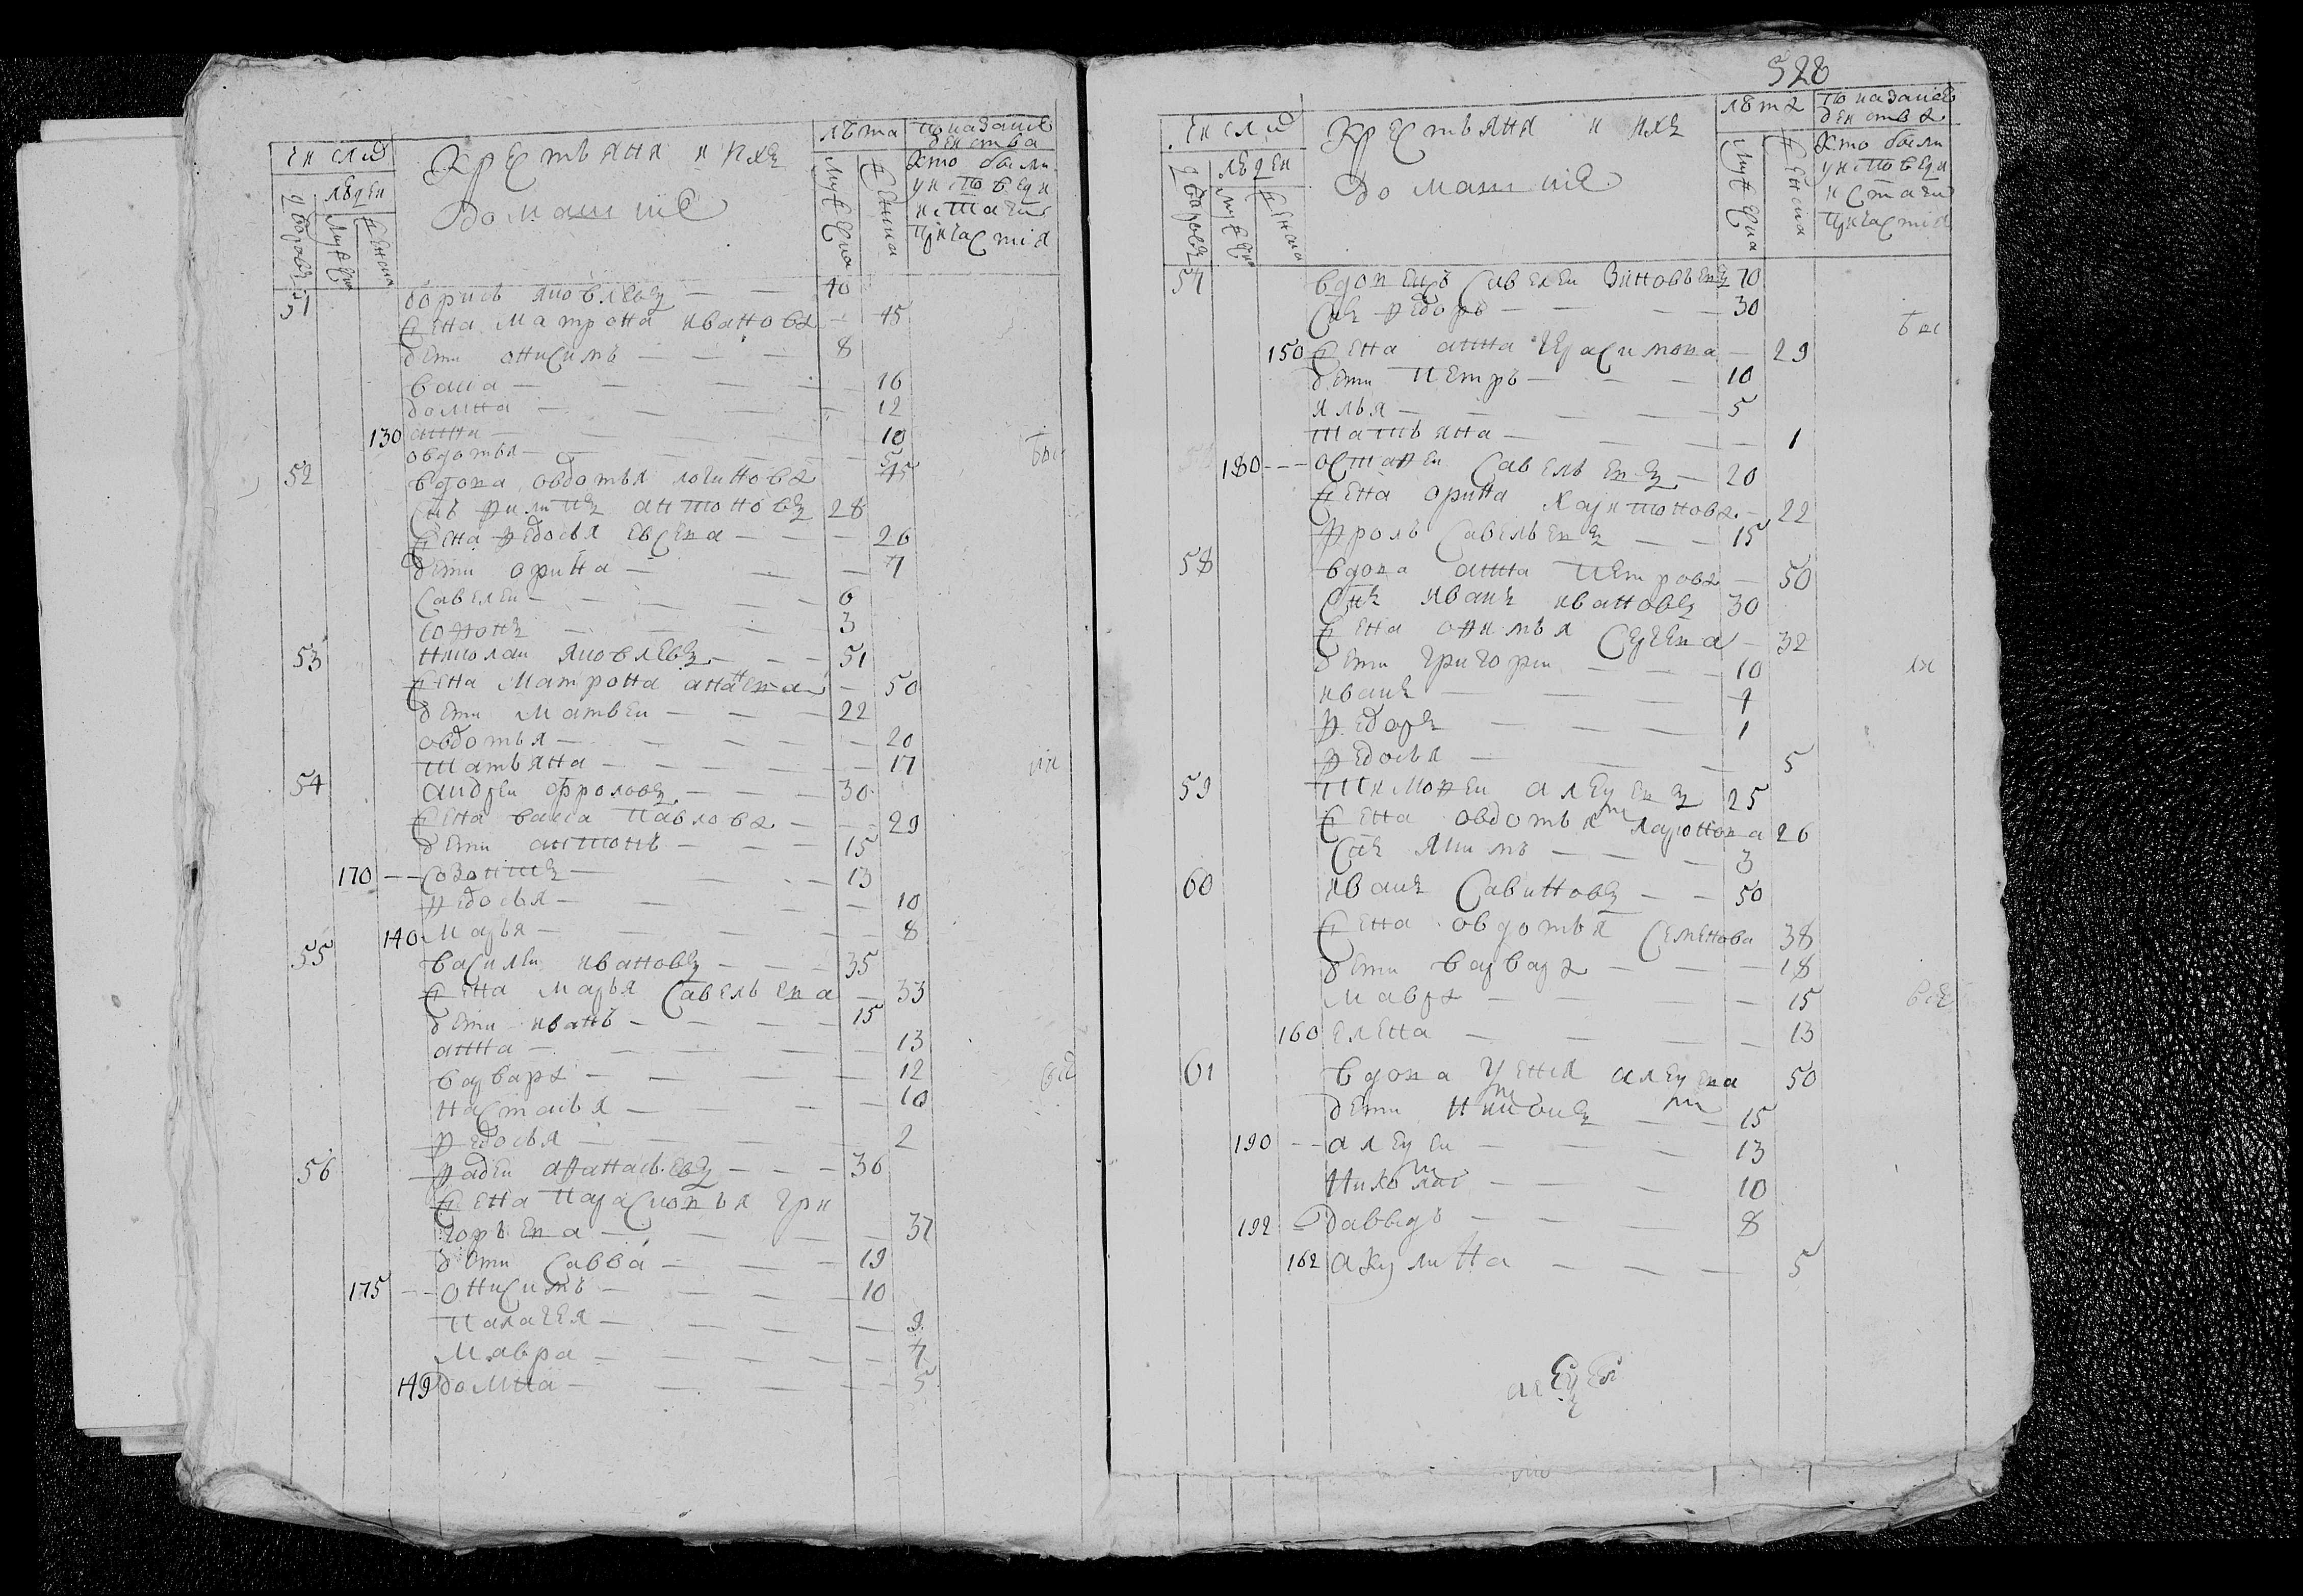 число
дворовъ
людей
мужеска
женска
Крестьяня и ихъ
домашние
лѣта
мужеска
женска
показание
действа
кто были
у исповеди
и стаго
причастия
51 борисъ яковлевъ 40
жена матрона иванова 45
дети онисимъ 8
васса 16
домна 12
130 анна 10
овдотья 5
52 вдова овдотья логинова 45
снъ филипъ антоновъ 28
жена федосья евсева 26
дети орина 7
савелеи 6
софонъ 3
53 николаи яковлевъ 51
жена матрона 50
дети матвеи 22
овдотья 20
татьяна 17
54 андреи фроловъ 30
жена васса павлова 29
дети антонъ 15
170 созонтъ 13
федосья 10
140 марья 8
55 василеи ивановъ 35
жена марья савельева 33
дети иванъ 15
анна 13
варвара 12
настасья 10
федосья 2
56 фадеи афанасьевъ 36
жена парасковья гри
горьева 37
дети савва 19
175 онисимъ 10
палагея 9
мавра 7
149 домна 5
528
число
дворовъ
людей
мужеска
женска
Крестьяня и ихъ
домашние
лѣта
мужеска
женска
показание
действа
кто были
у исповеди
и стаго
причастия
57 вдовецъ савелеи зиновьевъ 70
снъ федоръ 30
150 жена анна герасимова 29
дети петръ 10
илья 5
татьяна 1
180 остафеи савельевъ 20
жена орина харитонова 22
фролъ савельевъ 15
58 вдова анна петрова 50
снъ иванъ ивановъ 30
жена офимья сергеева 32
дети григореи 10
иванъ 7
федоръ 1
федосья 5
59 тимофеи алексеевъ 25
жена овдотья ларионова 26
снъ якимъ 3
60 иванъ савиновъ 50
жена овдотья семенова 38
дети варвара 18
мавра 15
160 елена 13
61 вдова ксения алексеева 50
дети никонъ 15
190 алексеи 13
николаи 10
192 давыдъ 8
162 акулина 5
алексеи